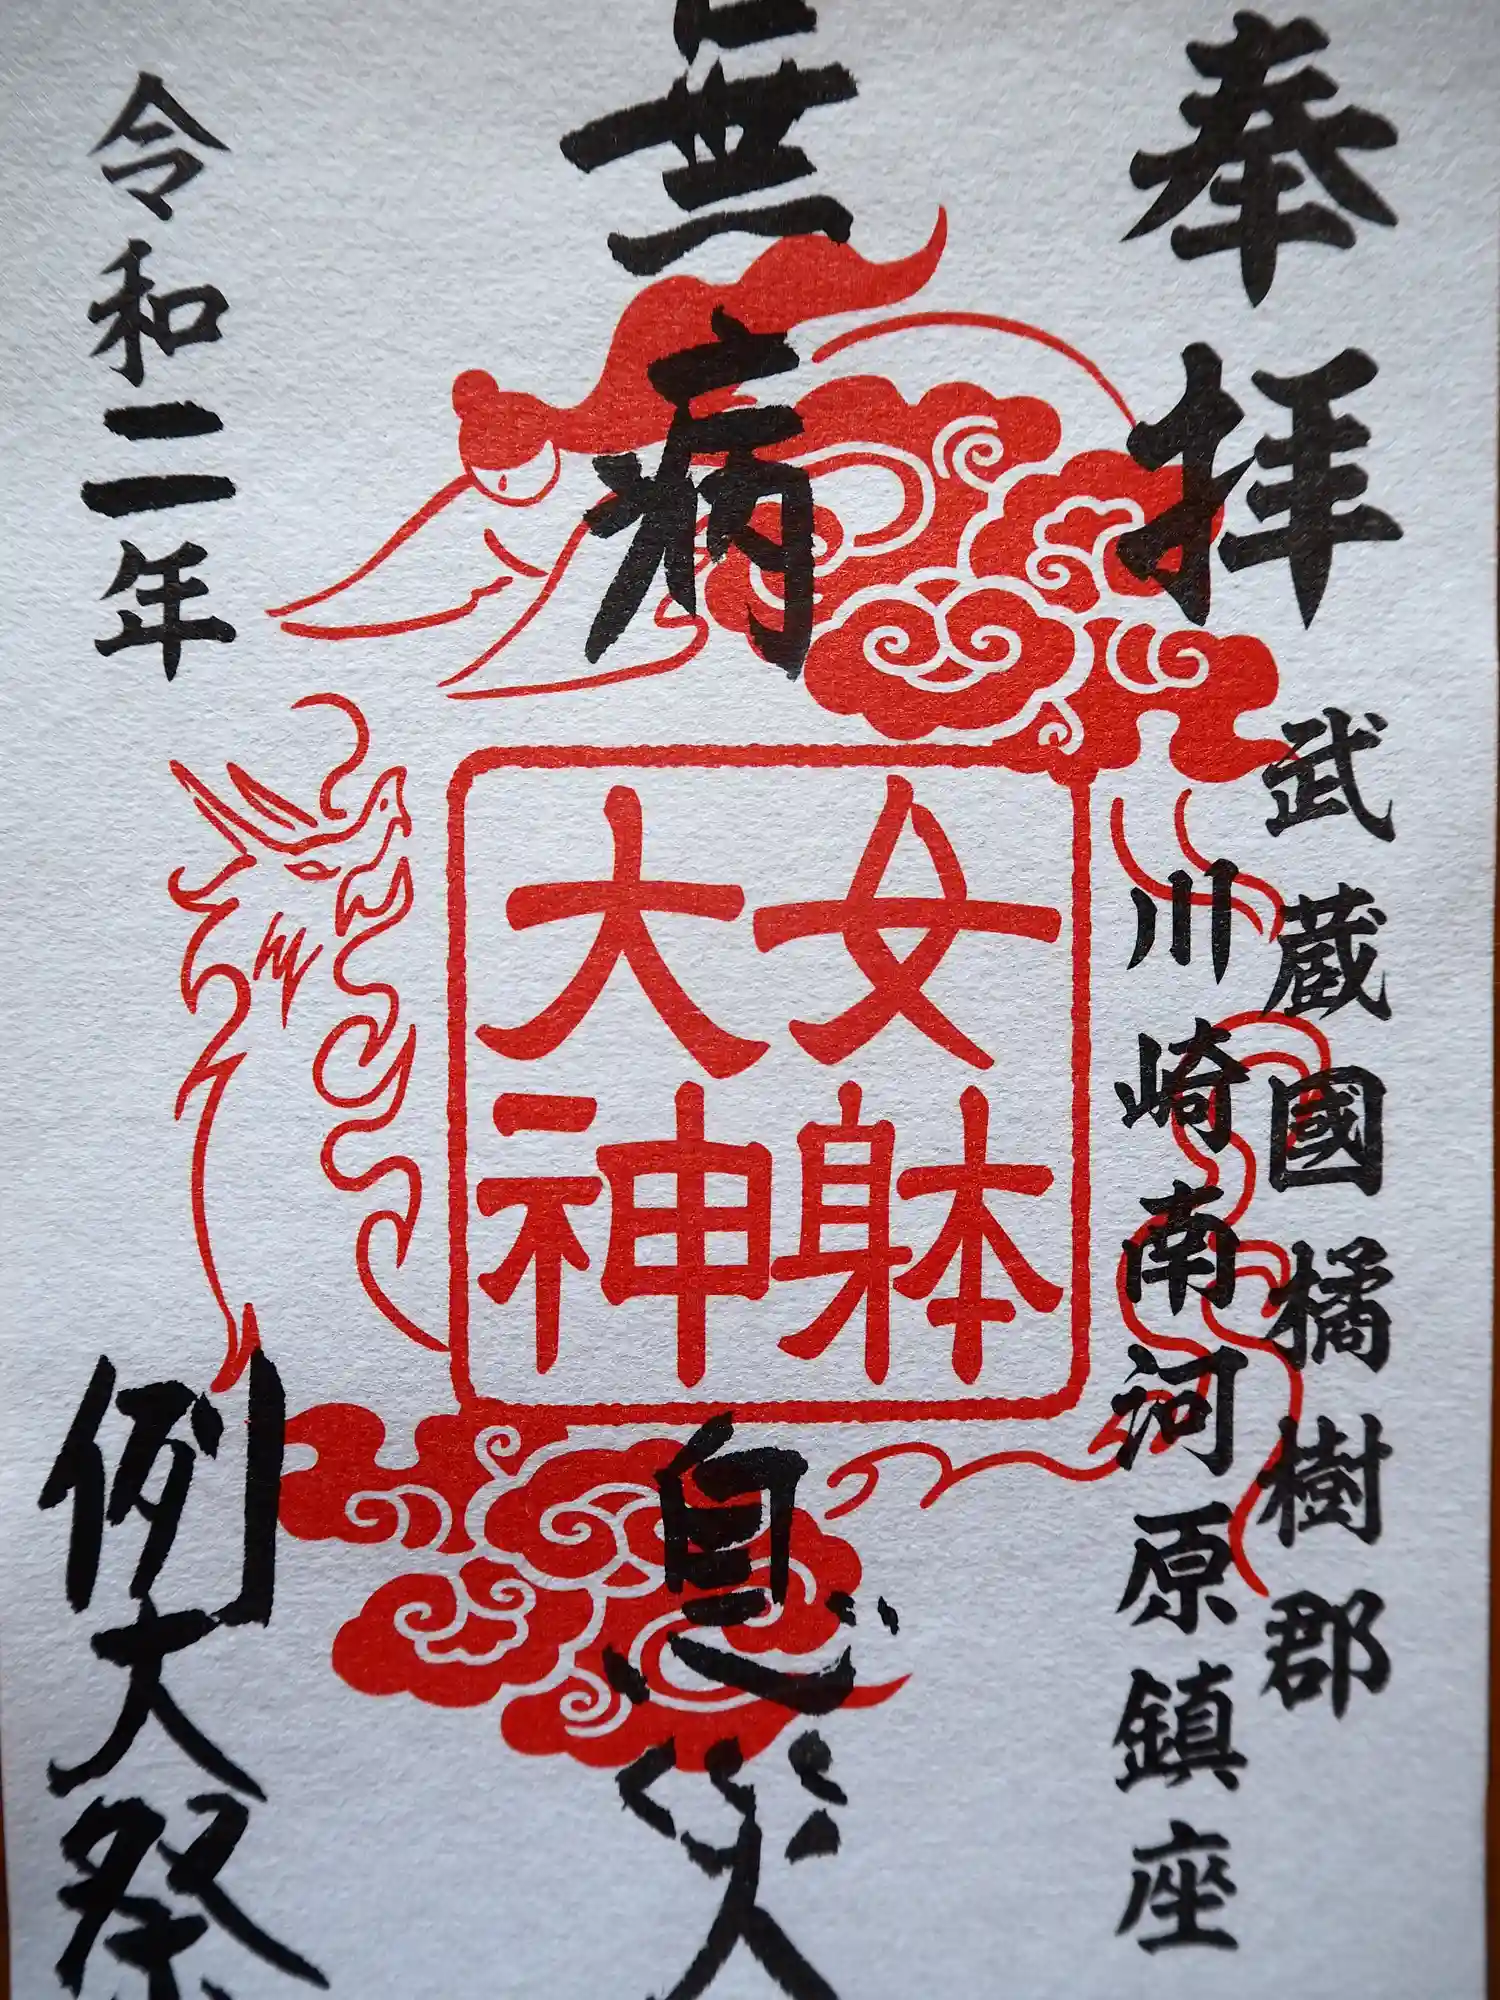 奉拝
武蔵國橘樹郡
川崎南河原鎮座
無病息災
女躰
大神
令和二年
例大祭